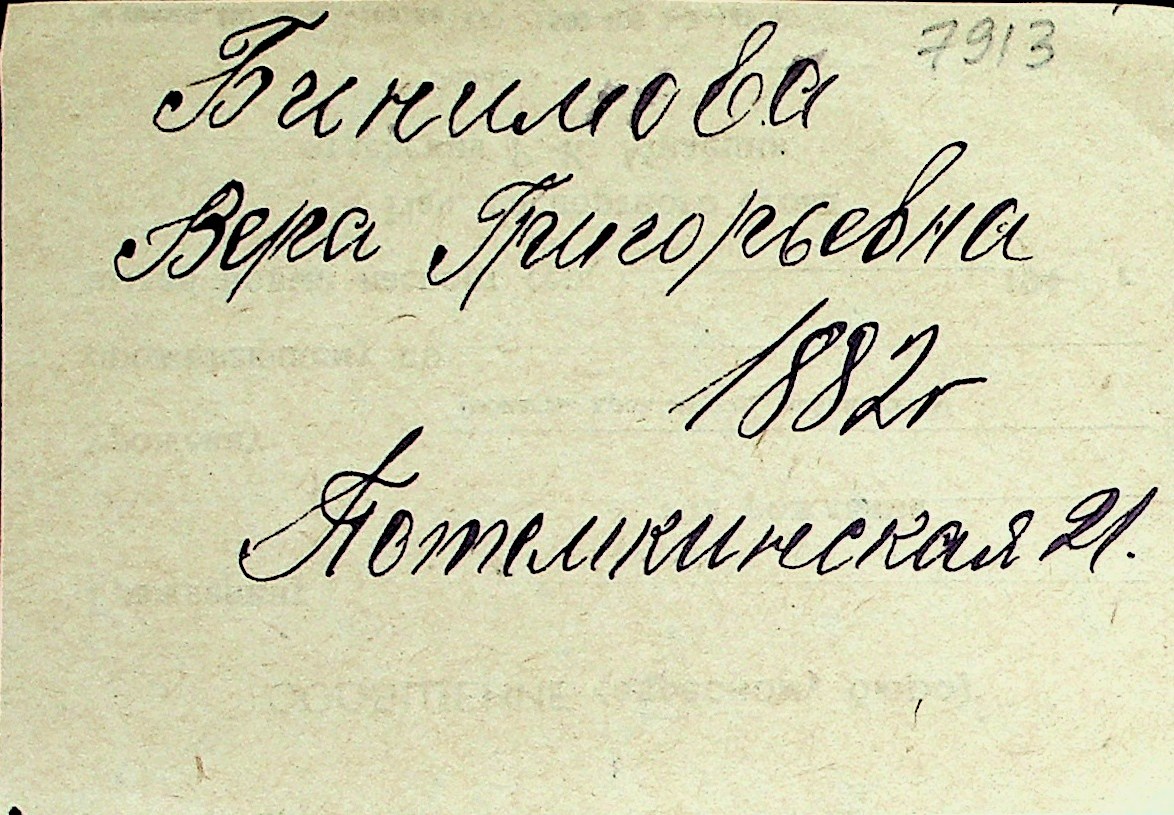 7913
Бинимова
Вера Григорьевна
1882г
Потемкинская 21.